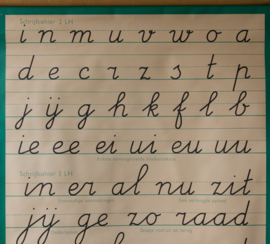 Schrijfletter 2 LM
i n m u v w o a
d e c r z s t p
j ij g h k f l b
ie ee ei ui eu uu
Schrijfletter 3 LM
in er al nu zit
jij ge zo raad